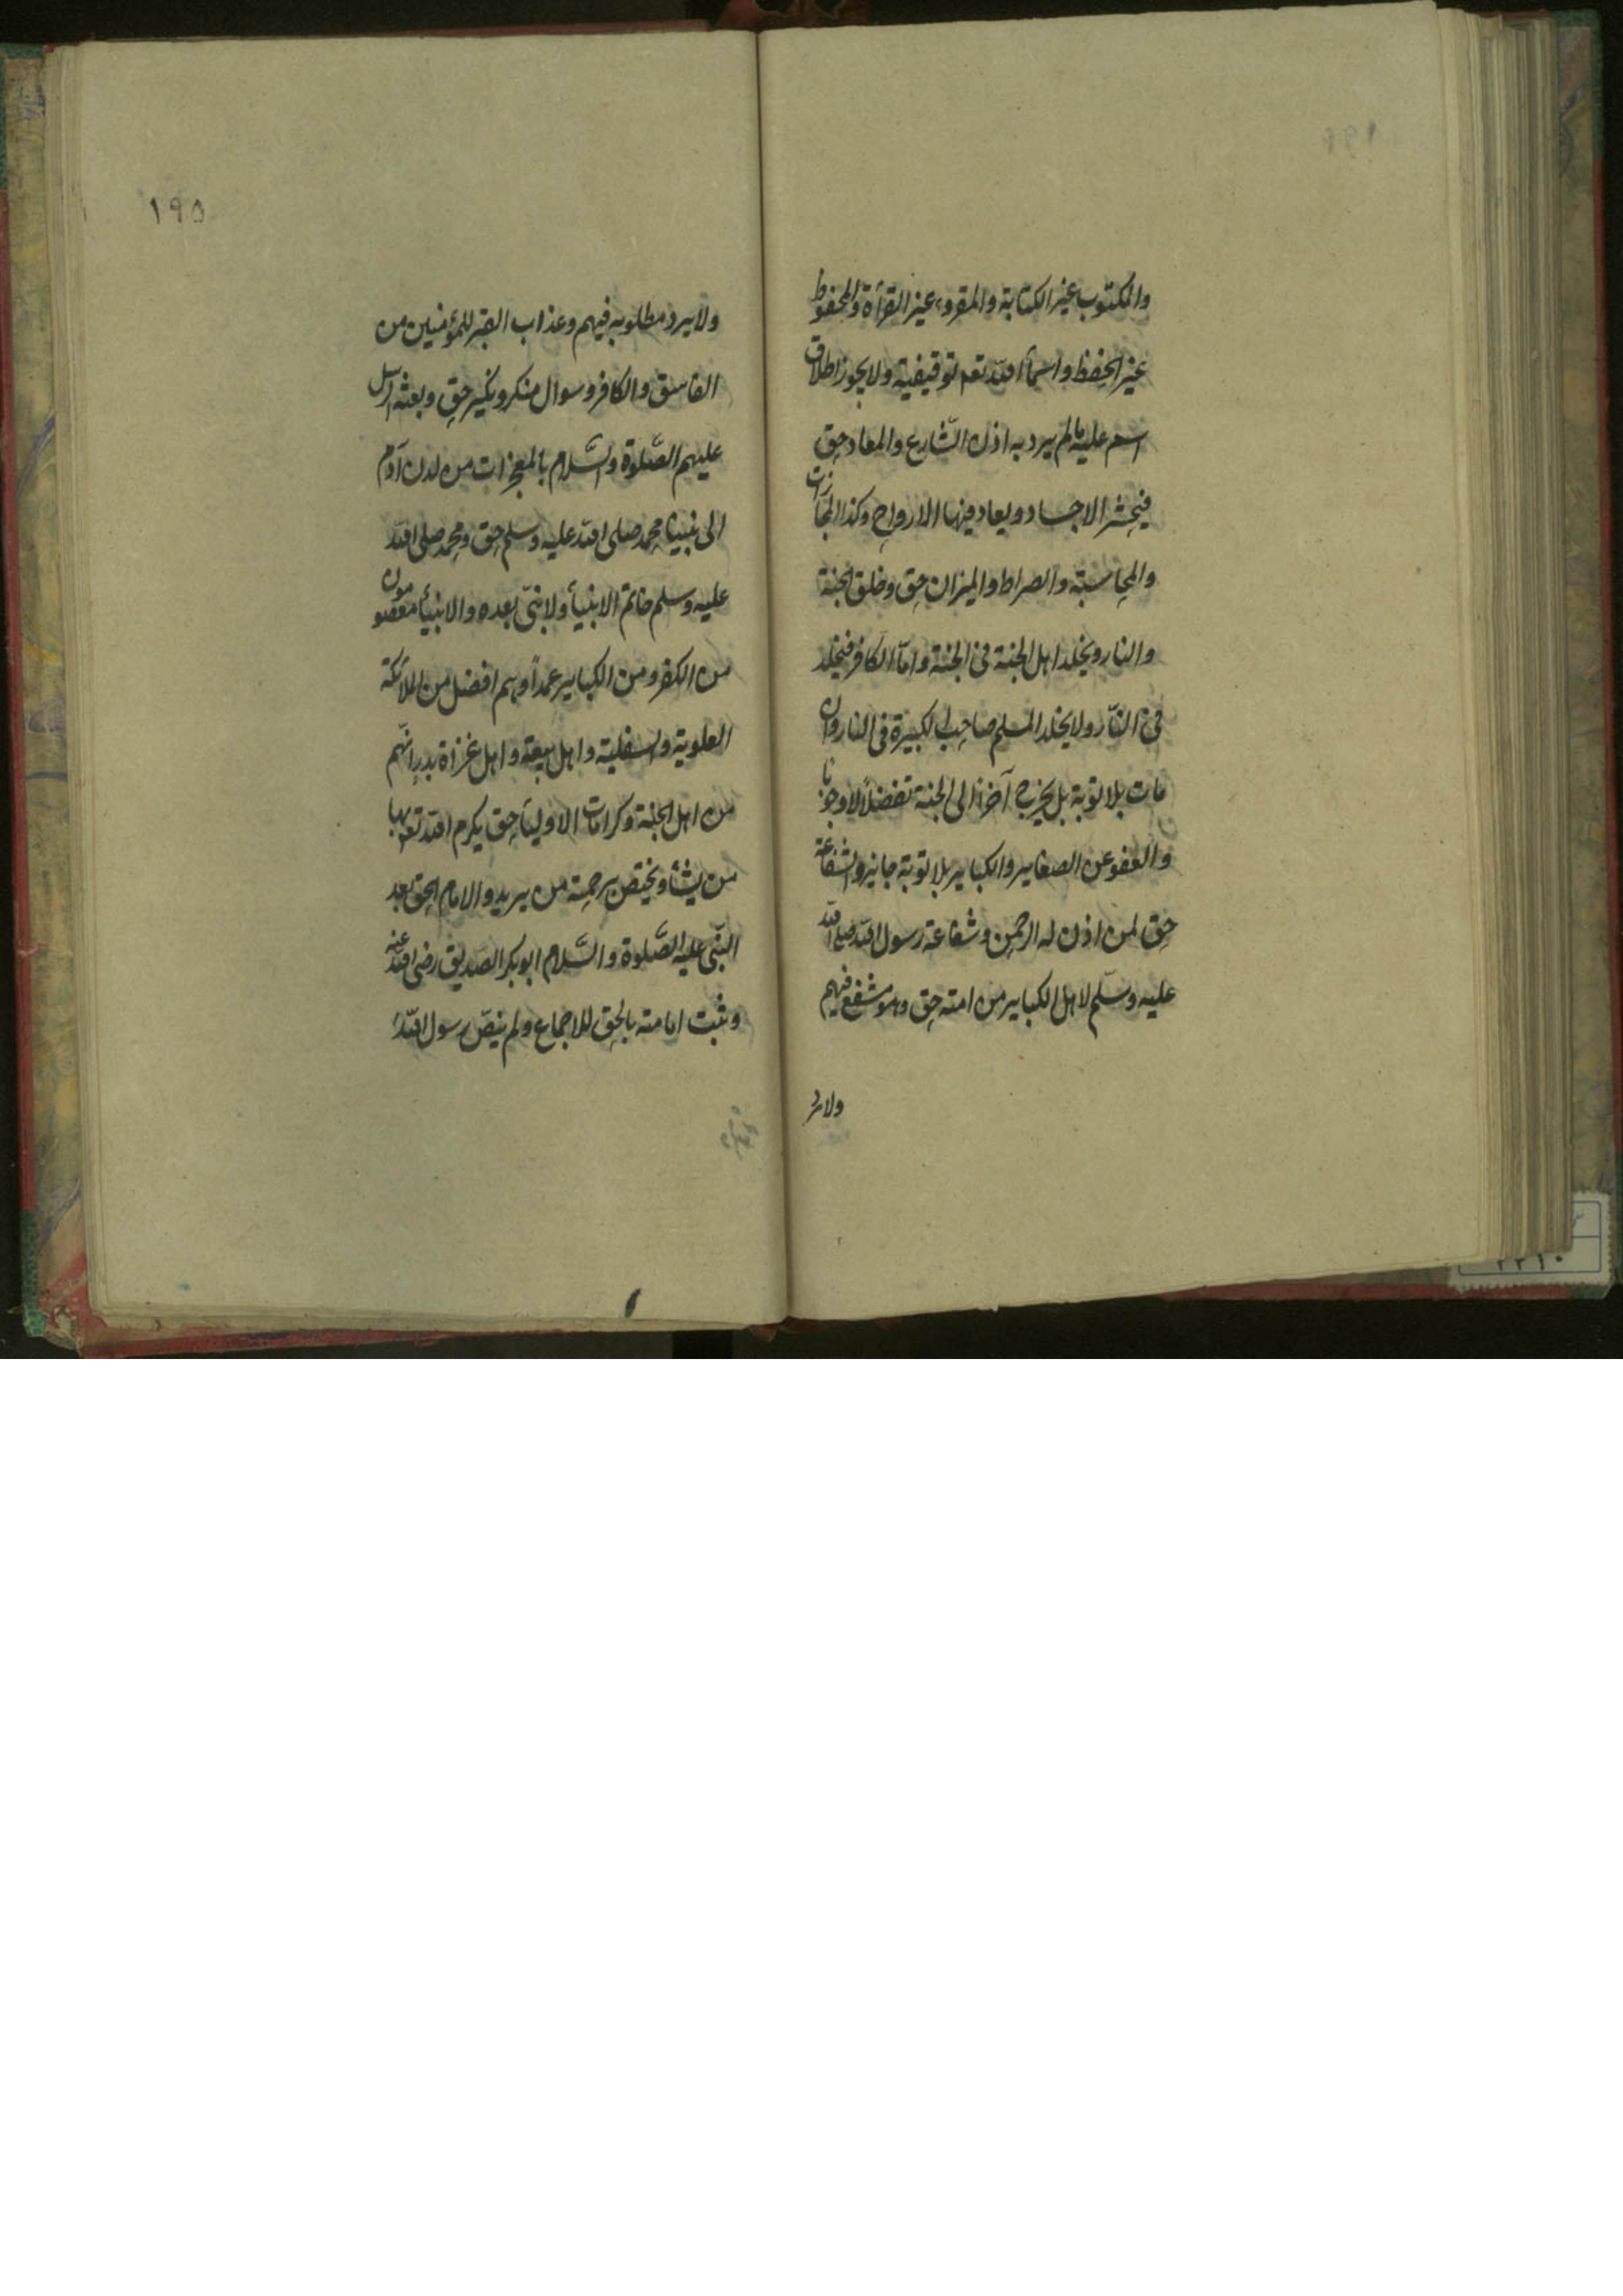 والمكتوب غير الكتابة والمقروء غير القرأة والمحفوظ
غير الحفظ واسمأ الله تعم توقيفية ولا يجوز اطلاق
اسم عليه مالم يرد به اذن الشّارع والمعاد حق
فيحشر الاجساد ويعاد فيها الارواح وكذا المجازات
والمحاسبة والصراط والميزان حق وخلق الجنة
والنار ويخلد اهل الجنة فى الجنة وامّا الكافر فيخلد
فى النّار ولا يخلد المسلم صاحب الكبيرة فى النار وان
مات بلا توبة بل يخرج آخرا الى الجنة تفضلاً لا وجوبا
والعفو عن الصغاير والكباير بلا توبة جايز والشفاعة
حق لمن اذن له الرحمن وشفاعة رسول الله صلى الله
عليه وسلّم لاهل الكباير من امته حق وهو مشفع فيهم
ولا يرد
١٩٥
ولا يرد مطلوبه فيهم وعذاب القبر للمؤمنين من
الفاسق والكافر وسوال منكر ونكير حق وبعثه الرسل
عليهم الصّلوة والسّلام بالمعجزات من لدن آدم
الى نبينا محمد صلى الله عليه وسلم حق ومحمد صلى الله
عليه وسلم خاتم الانبيأ ولا نبىّ بعده والانبيأ معصومون
من الكفر ومن الكباير عمداً وهم افضل من الملائكة
العلوية والسفلية واهل بيعة واهل غزاة بدر انّهم
من اهل الجنة وكرامات الاوليأ حق يكرم الله تعم بها
من يشأ ويختص برحمته من يريد والامام الحق بعد
النبّى عليه الصّلوة والسّلام ابو بكر الصّديق رضى الله عنه
وثبت امامته بالحق للاجماع ولم ينصّ رسول الله
٢٢١٠